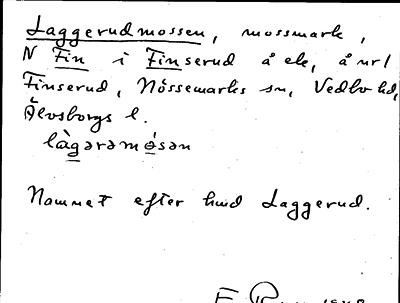 Laggerudmossen, mossmark,
N Fin i Finserud å ek, å nr 1
Finserud, Nössemarks sn, Vedbo hd,
Älvsborgs l.
làgərəmósən
Namnet efter hmd Laggerud.